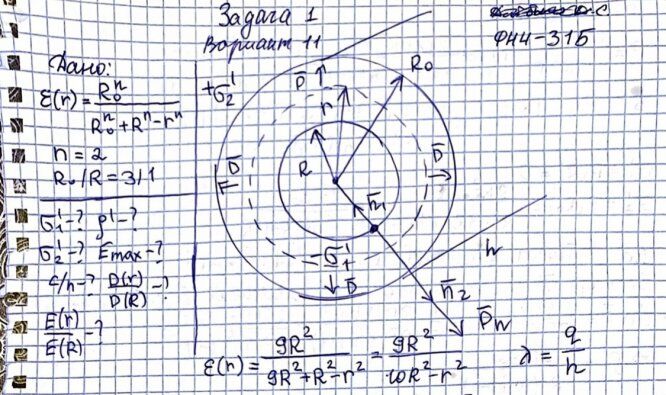 Задача 1
Вариант 11
ФН4-31Б
Дано:
ε(r) = R₀ⁿ / (R₀ⁿ + Rⁿ - rⁿ)
n = 2
R₀/R = 3/1
σ₁' - ? ρ' - ?
σ₂' - ? Emax - ?
C/h - ? D(r)/D(R) - ?
E(r)/E(R) - ?
+σ₂'
D̄
r
R₀
D̄
R
D̄
n̄₁
-σ₁'
D̄
h
n̄₂
D̄n
ε(r) = 9R² / (9R² + R² - r²) = 9R² / (10R² - r²)
λ = q/h